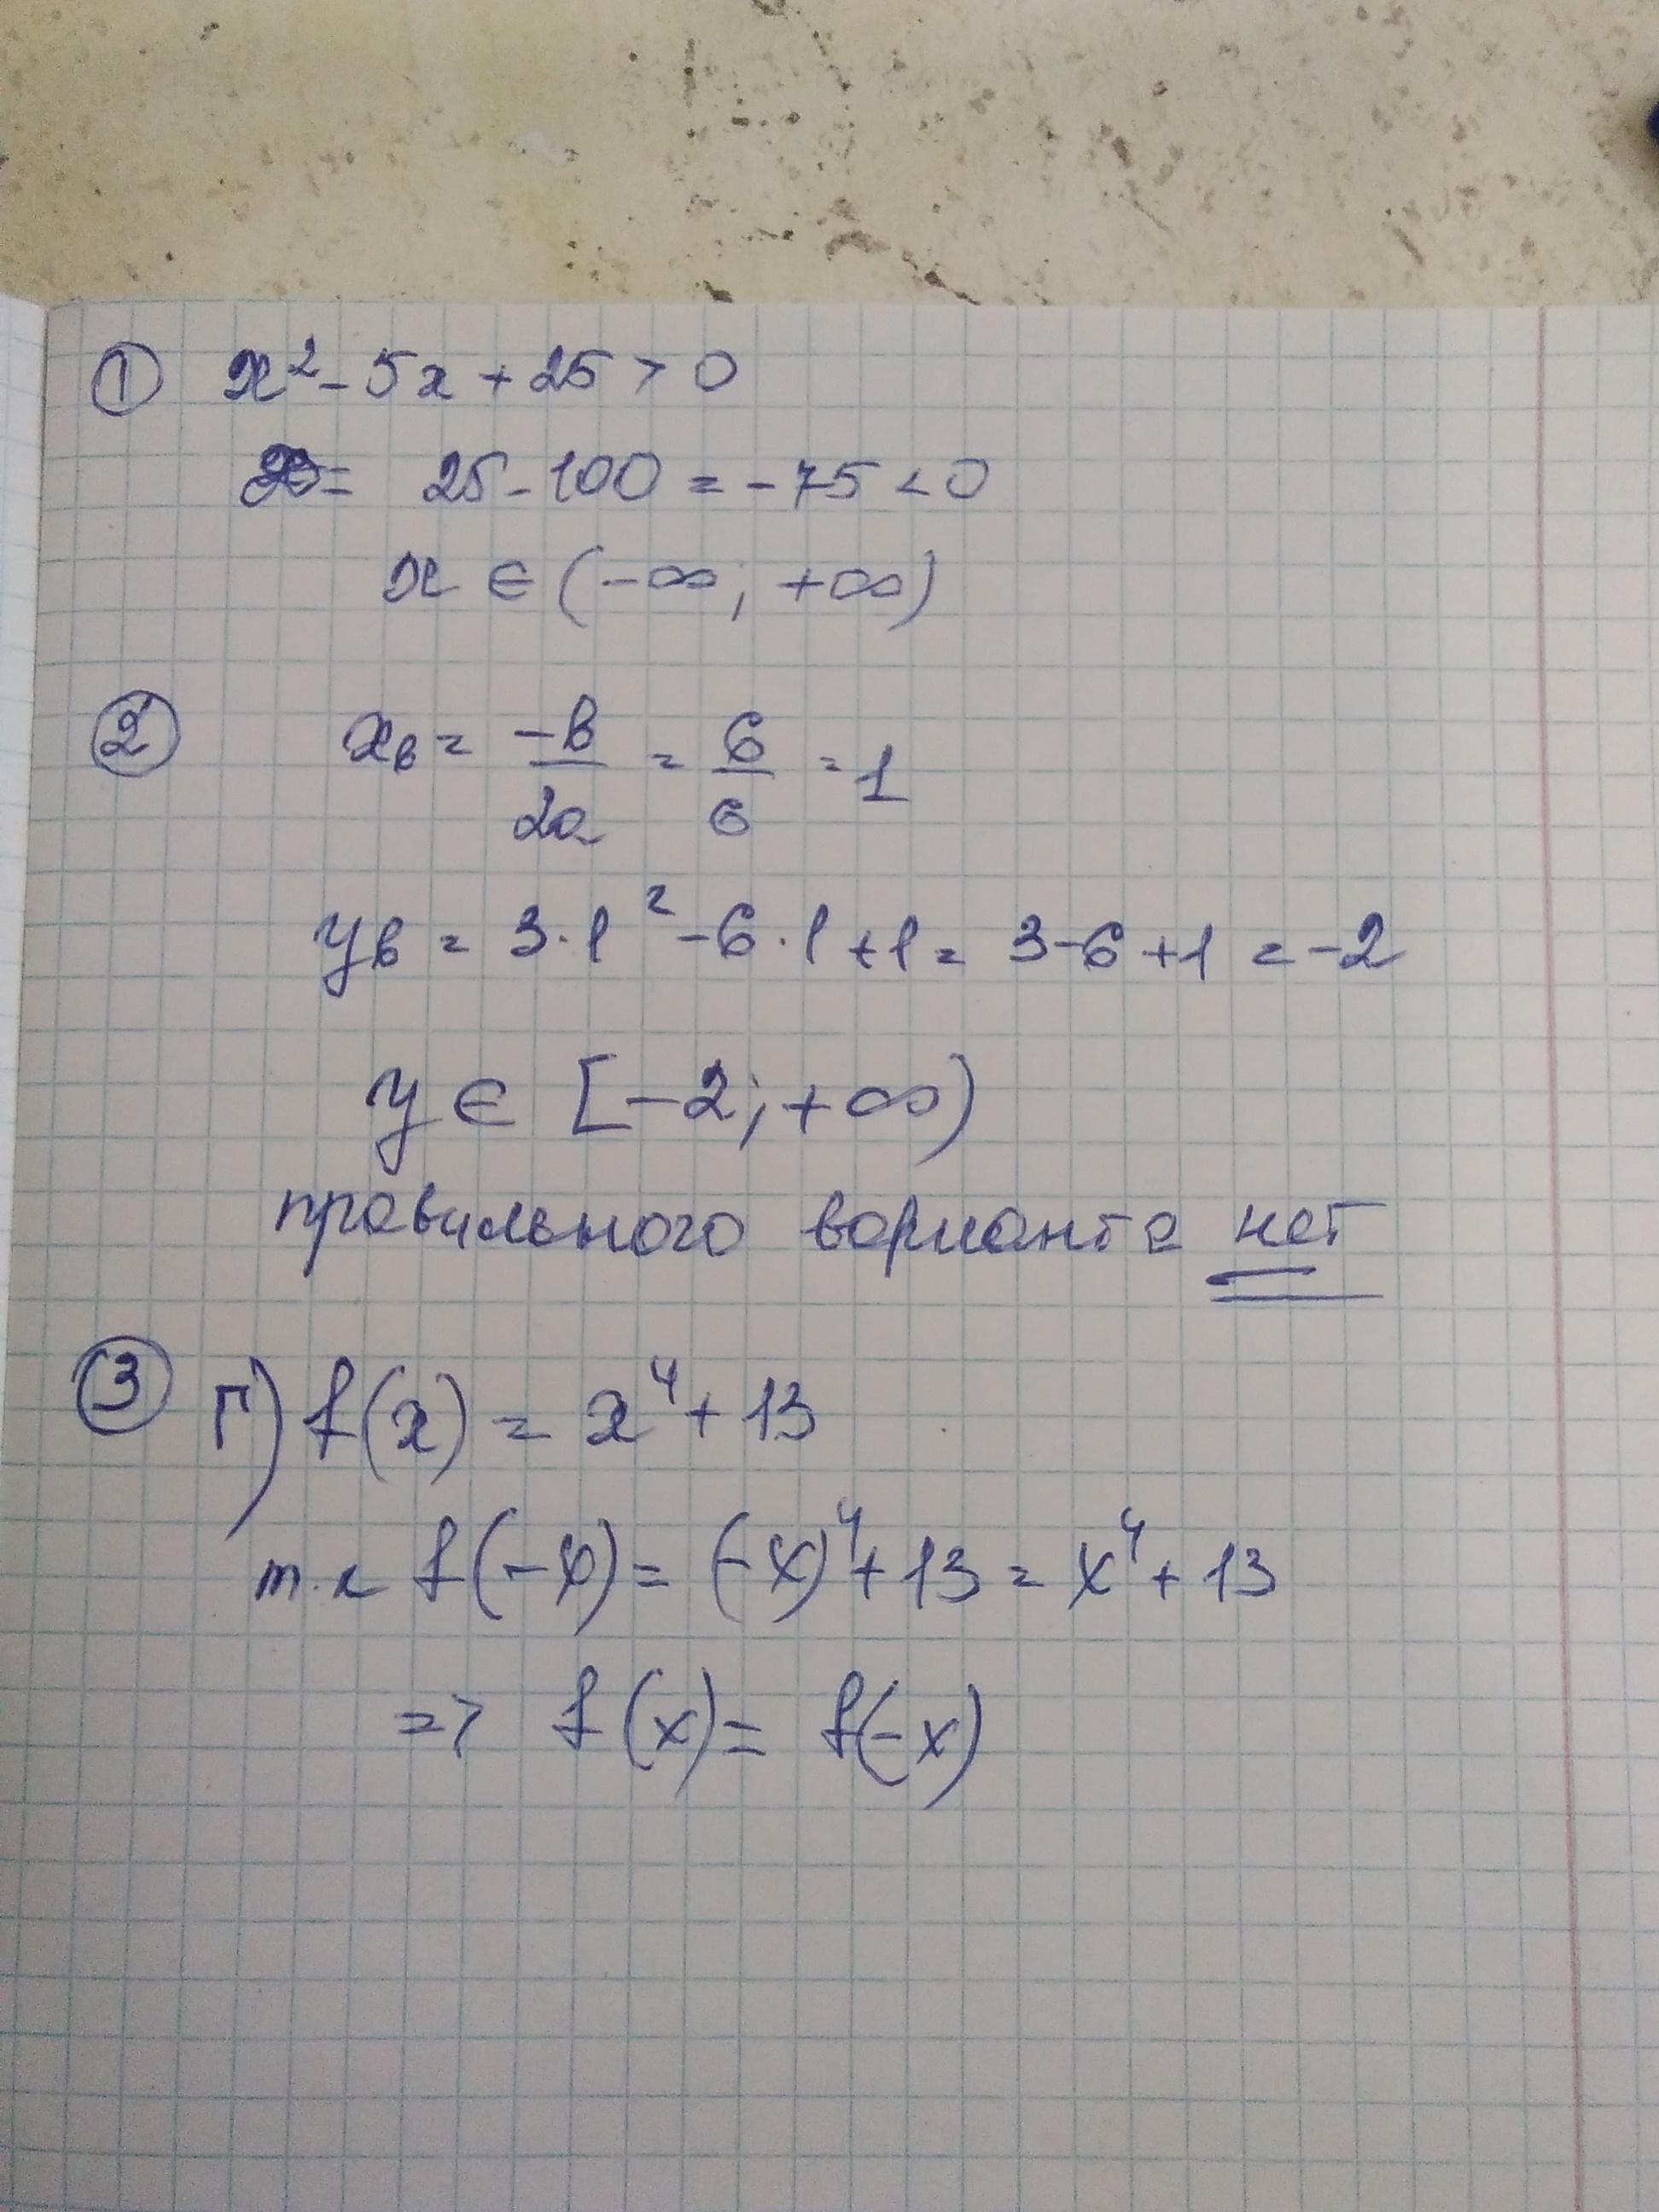 ① x² - 5x + 25 > 0
D = 25 - 100 = -75 < 0
x ∈ (-∞; +∞)
② xв = -b/2a = 6/6 = 1
yв = 3·1² - 6·1 + 1 = 3 - 6 + 1 = -2
y ∈ [-2; +∞)
правильного варианта нет
③ г) f(x) = x⁴ + 13
т.к f(-x) = (-x)⁴ + 13 = x⁴ + 13
=> f(x) = f(-x)